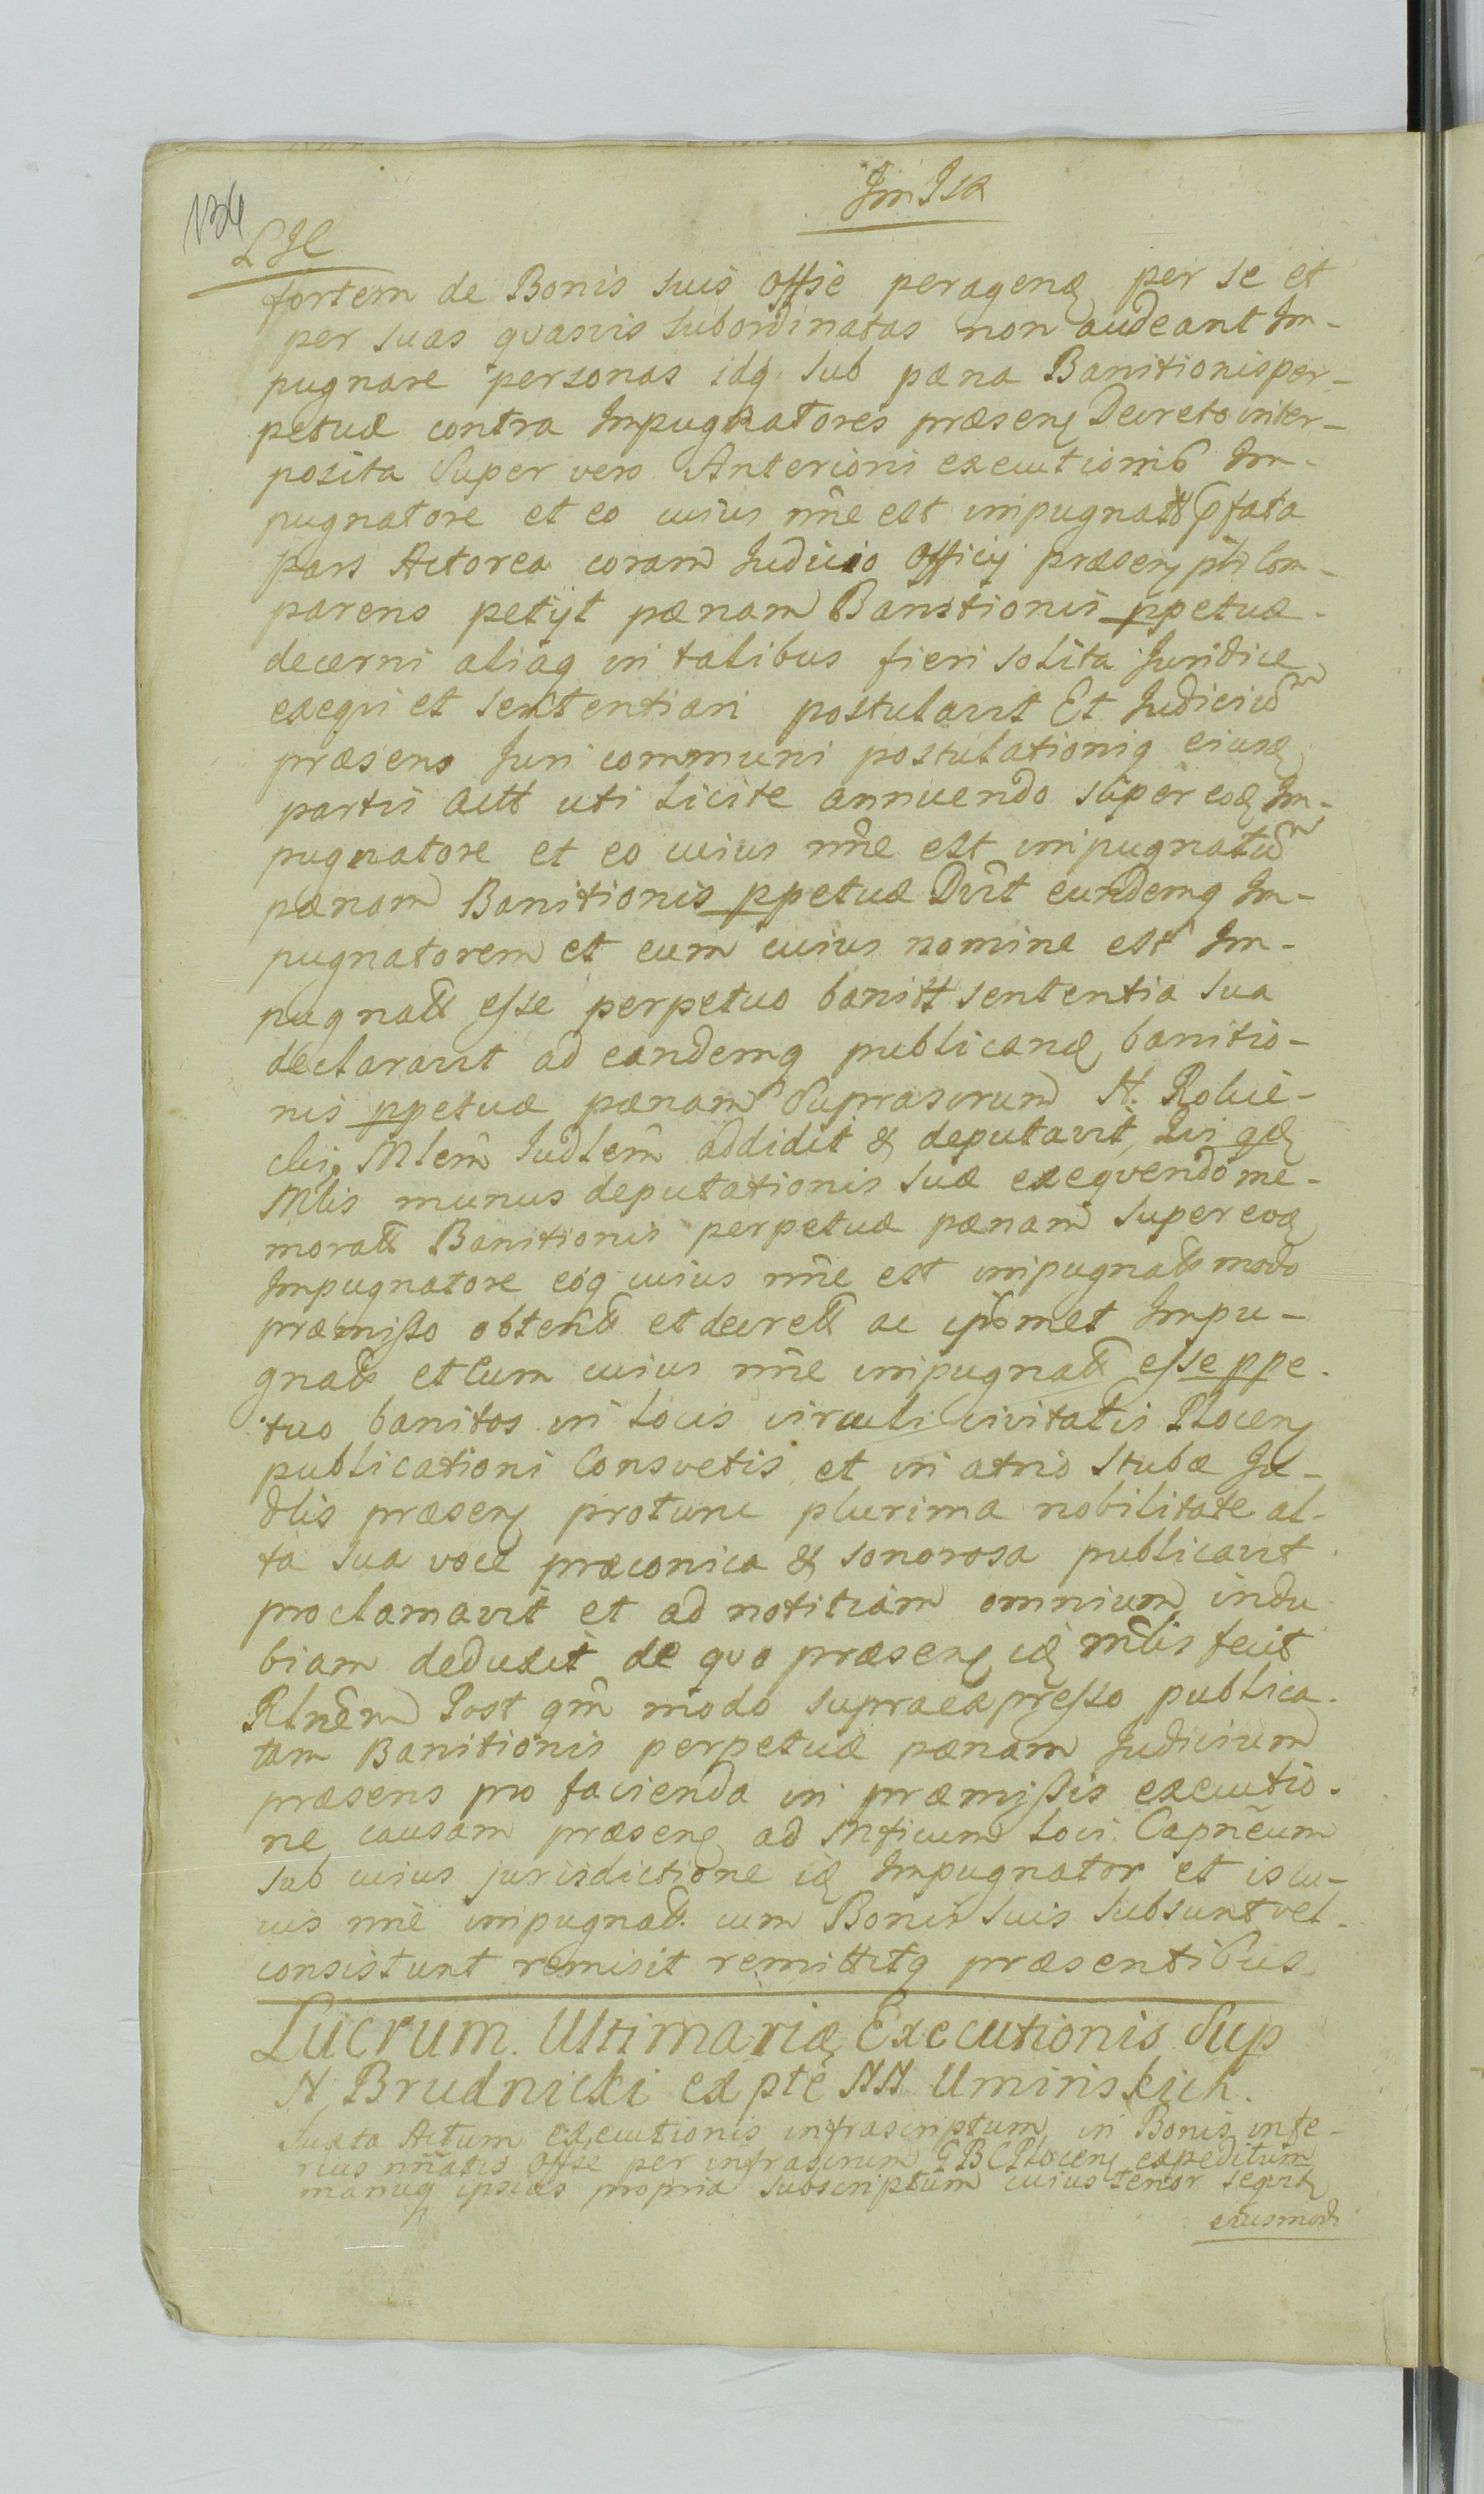 134
fortem de Bonis suis Offse peragenę per se et
per suas quasvis subordinatas non audeant Im-
pugnare personas idq. sub pæna Banitionis per-
petuæ contra Impugnatores præsenę Decreto inter-
posita Super vero Anterioni executionib Im-
pugnatore et eo cuius nne est impugnatt pfata
pars Actorea coram Judicio Officij præsenę pltr Com-
parens petijt pænam Banitionis ppetuæ
decerni aliaq in talibus fieri solita Juridice
exeqvi et sententiari postulavit Et Judicium
præsens Juri communi postulationiq eiusdę
partis Actt uti licite annuendo super eodę Im-
pugnatore et eo cuius nne est impugnatum
pænam Banitionis ppetuæ Dvit eundemq Im-
pugnatorem et eum cuius nomine est Im-
pugnatt esse perpetuo banitt sententia sua
declaravit ad eandemq publicandę banitio-
nis ppetuæ pænam Suprascrum N. Rolie-
cki Mlem Judlem addidit & deputavit, Qvi qdę
Mlis munus deputationis suæ exeqvendo me-
moratt Banitionis perpetuæ pænam super eodę
Impugnatore eoq cuius nne est impugnatt modo
præmisso obtentt et decrett ac ipsomet Impu-
gnatt et Eum cuius nne impugnatt esse ppe-
tuo banitos in locis circuli civitatis Plocenę
publicationi Consvetis et in atrio Stubæ Ju-
dlis præsenę protunc plurima nobilitate al-
ta sua voce præconica & sonorosa publicavit
proclamavit et ad notitiam omnium indu
biam deduxit de quo præsenę idę mlis fecit
Rlnem Post qm modo supraexpresso publica-
tam Banitionis perpetuæ pænam Judicium
præsens pro facienda in præmissis executio-
ne causam præsenę ad Mficum Loci Capneum
sub cuius jurisdictione idę Impugnator et is cu-
ius nne impugnatt. cum Bonis suis subsunt vel
consistunt remisit remittitq præsentibus
Lucrum Ultimariæ Executionis Sup
N Brudnicki ex pte NN Uminskich.
Juxta Actum executionis infrascriptum in Bonis infe-
rius nnatis Offse per infrascrum G B C Plocenę expeditum
manuq ipsius propria subscriptum cuius tenor seqvitę
eiusmodi